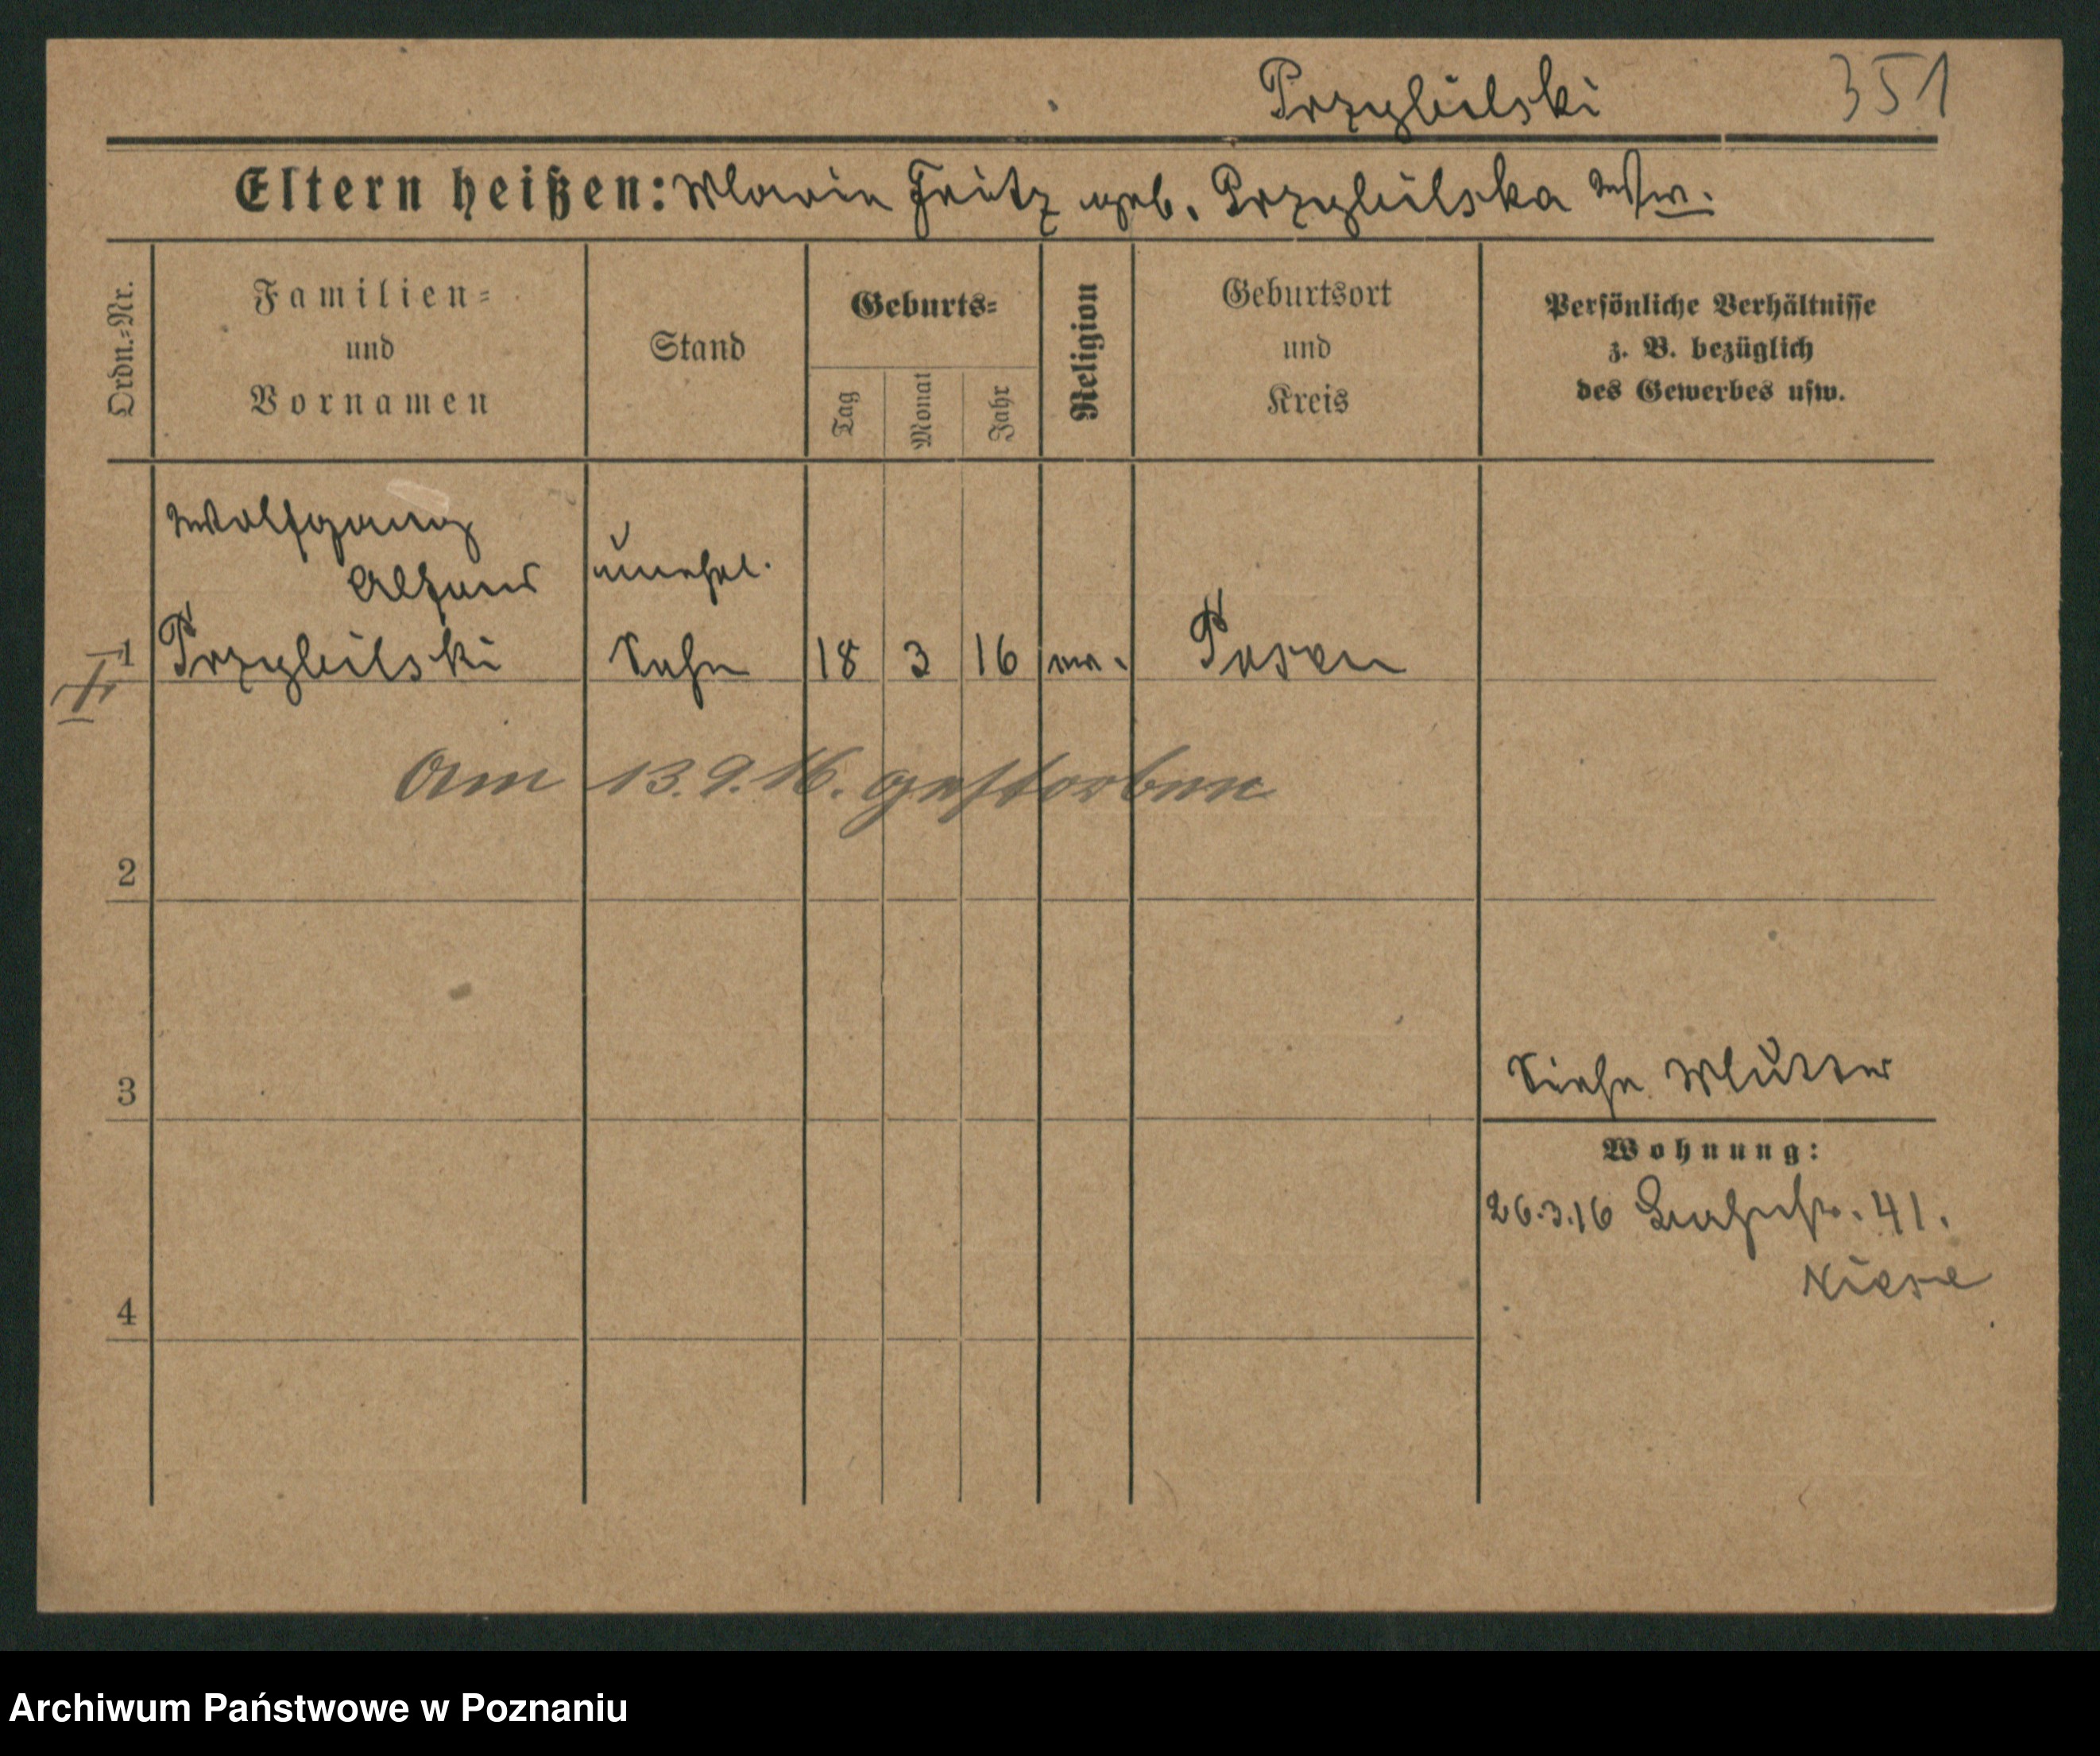 Przybilski 351
Eltern heißen: Marie Fritz geb. Przybilska Ww.
Ordn.-Nr.
Familien-
und
Vornamen
Stand
Geburts-
Tag
Monat
Jahr
Religion
Geburtsort
und
Kreis
Persönliche Verhältnisse
z. B. bezüglich
des Gewerbes usw.
Wolfgang
Alfons
unehel.
1 Przybilski Sohn 18 3 16 ev. Posen
Am 13.9.16. gestorben
2
3
Siehe Mutter
Wohnung:
26.3.16 41.
4
Archiwum Państwowe w Poznaniu